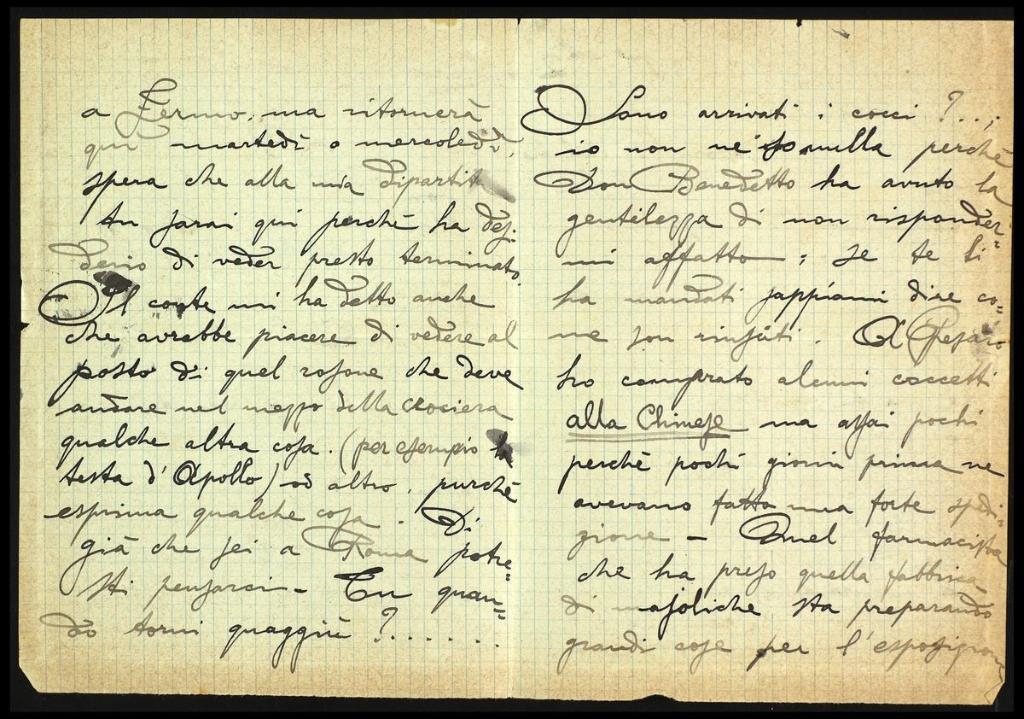 a Fermo, ma ritornerà
qui martedì o mercoledì,
spera che alla mia dipartita
tu sarai qui perché ha desi-
derio di veder presto terminato.
Il conte mi ha detto anche
che avrebbe piacere di vedere al
posto di quel rosone che deve
andare nel mezzo della crociera
qualche altra cosa. (per esempio la
testa d'Apollo) od altro, purché
esprima qualche cosa. Di
già che sei a Roma potre=
sti pensarci - Tu quan=
do torni quaggiù ?......
Sono arrivati i cocci ?..;
io non ne so nulla perché
Don Benedetto ha avuto la
gentilezza di non risponder=
mi affatto; se te li
ha mandati sappiami dire co=
me son riusciti. A Pesaro
ho comprato alcuni coccetti
alla Chinese ma assai pochi
perché pochi giorni prima ne
avevano fatto una forte spedi-
zione - Quel farmacista
che ha preso quella fabbrica
di majoliche sta preparando
grandi cose per l'esposizione